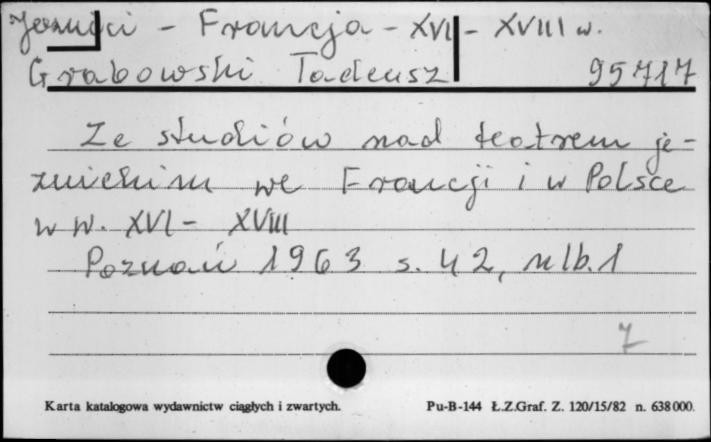 Jezuici - Francja - XVI - XVIII w.
Grabowski Tadeusz 95717
Ze studiów nad teatrem je-
zuickim we Francji i w Polsce
w w. XVI - XVIII
Poznań 1963 s. 42, nlb. 1
7
Karta katalogowa wydawnictw ciągłych i zwartych. Pu-B-144 Ł.Z.Graf. Z. 120/15/82 n. 638000.